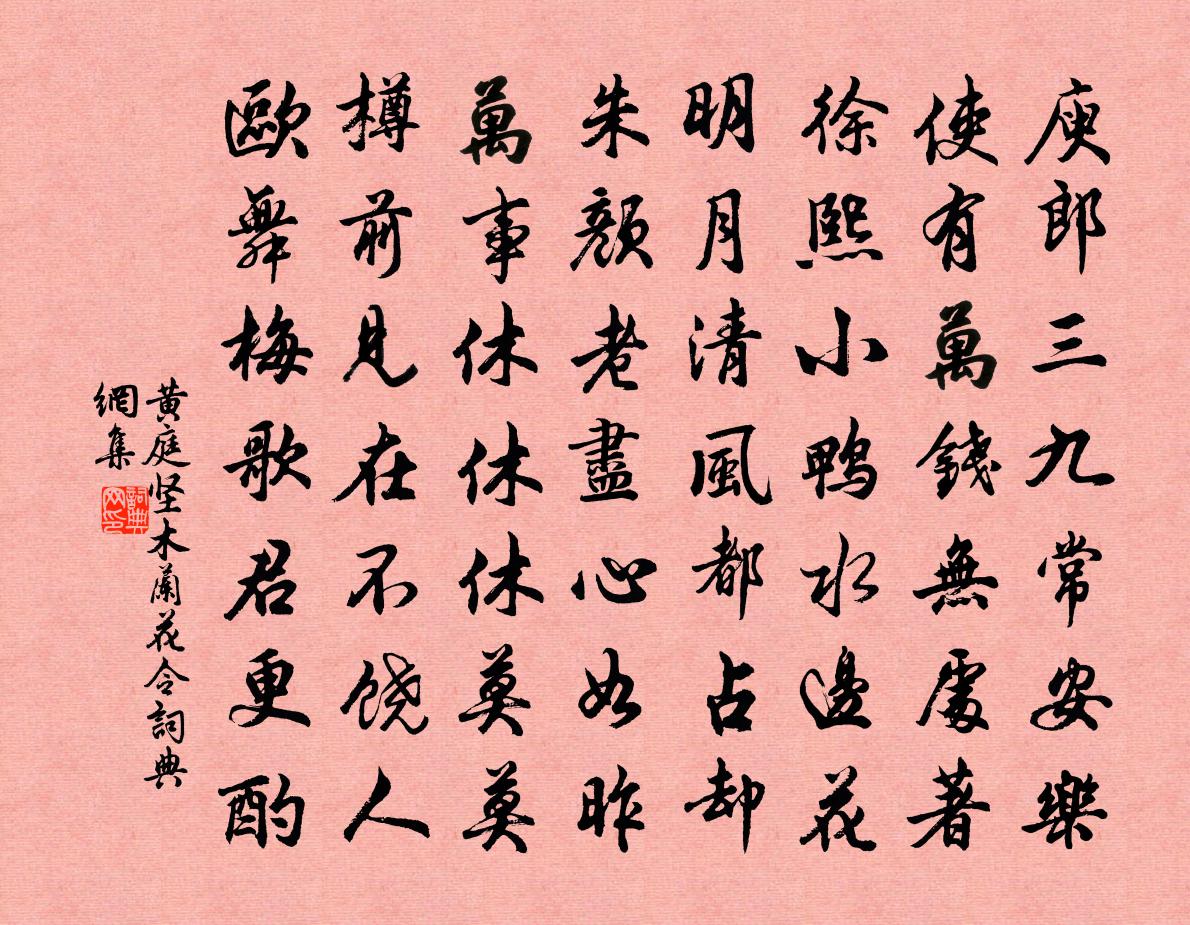 庾郎三九常安樂
使有萬錢無處著
徐熙小鴨水邊花
明月清風都占却
朱顏老盡心如昨
萬事休休休莫莫
樽前見在不饶人
歐舞梅歌君更酌
黃庭坚木蘭花令詞典
網集
詞典
网印